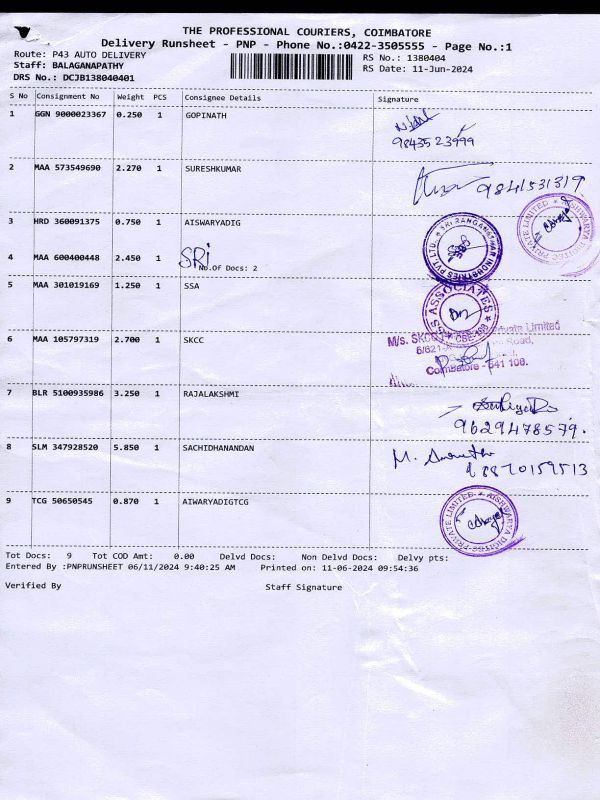 THE PROFESSIONAL COURIERS, COIMBATORE
Delivery Runsheet - PNP - Phone No.:0422-3505555 - Page No.:1
Route: P43 AUTO DELIVERY RS No.: 1380404
Staff: BALAGANAPATHY RS Date: 11-Jun-2024
DRS No.: DCJB138040401
S No Consignment No Weight PCS Consignee Details Signature
1 GGN 9000023367 0.250 1 GOPINATH
9843523999
2 MAA 573549690 2.270 1 SURESHKUMAR 9841531319
3 HRD 360091375 0.750 1 AISWARYADIG
AISHWARYA DIGITEC PRIVATE LIMITED
SRI RANGANATHAR INDUSTRIES PVT. LTD.
4 MAA 600400448 2.450 1 SRI
No.Of Docs: 2
5 MAA 301019169 1.250 1 SSA
SS ASSOCIATES
6 MAA 105797319 2.700 1 SKCC
M/s. SKCC Private Limited
Road,
Coimbatore - 641 108.
7 BLR 5100935986 3.250 1 RAJALAKSHMI
9629478579.
8 SLM 347928520 5.850 1 SACHIDHANANDAN M.
8870159513
9 TCG 50650545 0.870 1 AIWARYADIGTCG
AISHWARYA DIGITEC PRIVATE LIMITED
Tot Docs: 9 Tot COD Amt: 0.00 Delvd Docs: Non Delvd Docs: Delvy pts:
Entered By :PNPRUNSHEET 06/11/2024 9:40:25 AM Printed on: 11-06-2024 09:54:36
Verified By Staff Signature